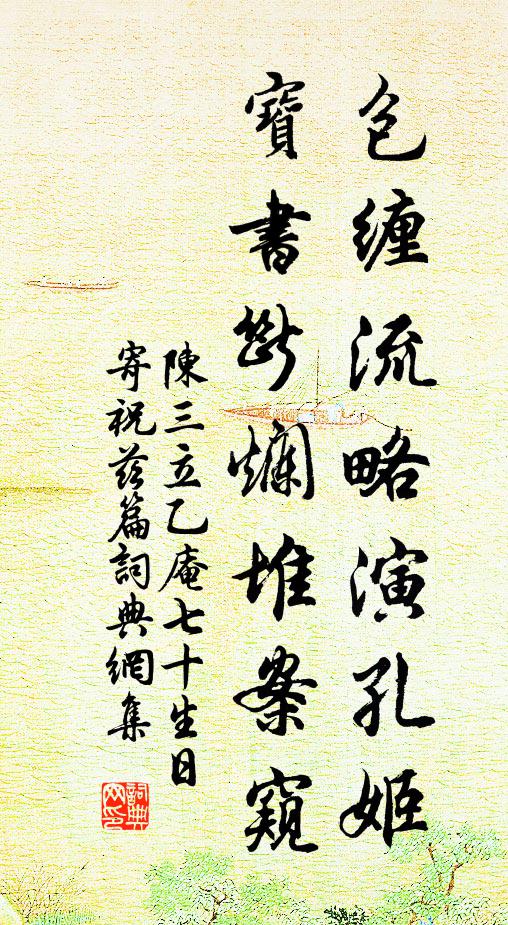 包缠流略演孔姬
寶書斷爛堆案窺
陳三立乙庵七十生日
寄祝茲篇詞典網集
詞典網印